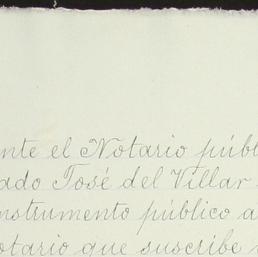 nte el Notario públ
ado José del Villar
nstrumento público a
otario que suscribe